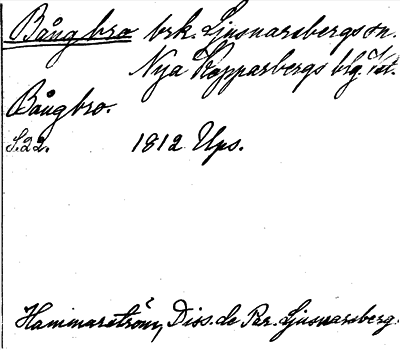 Bångbro brk. Ljusnarsbergs sn.
Nya Kopparbergs blg. Vst.
Bångbro.
S.22. 1812 Ups.
Hammarström, Diss. de Par. Ljusnarsberg.